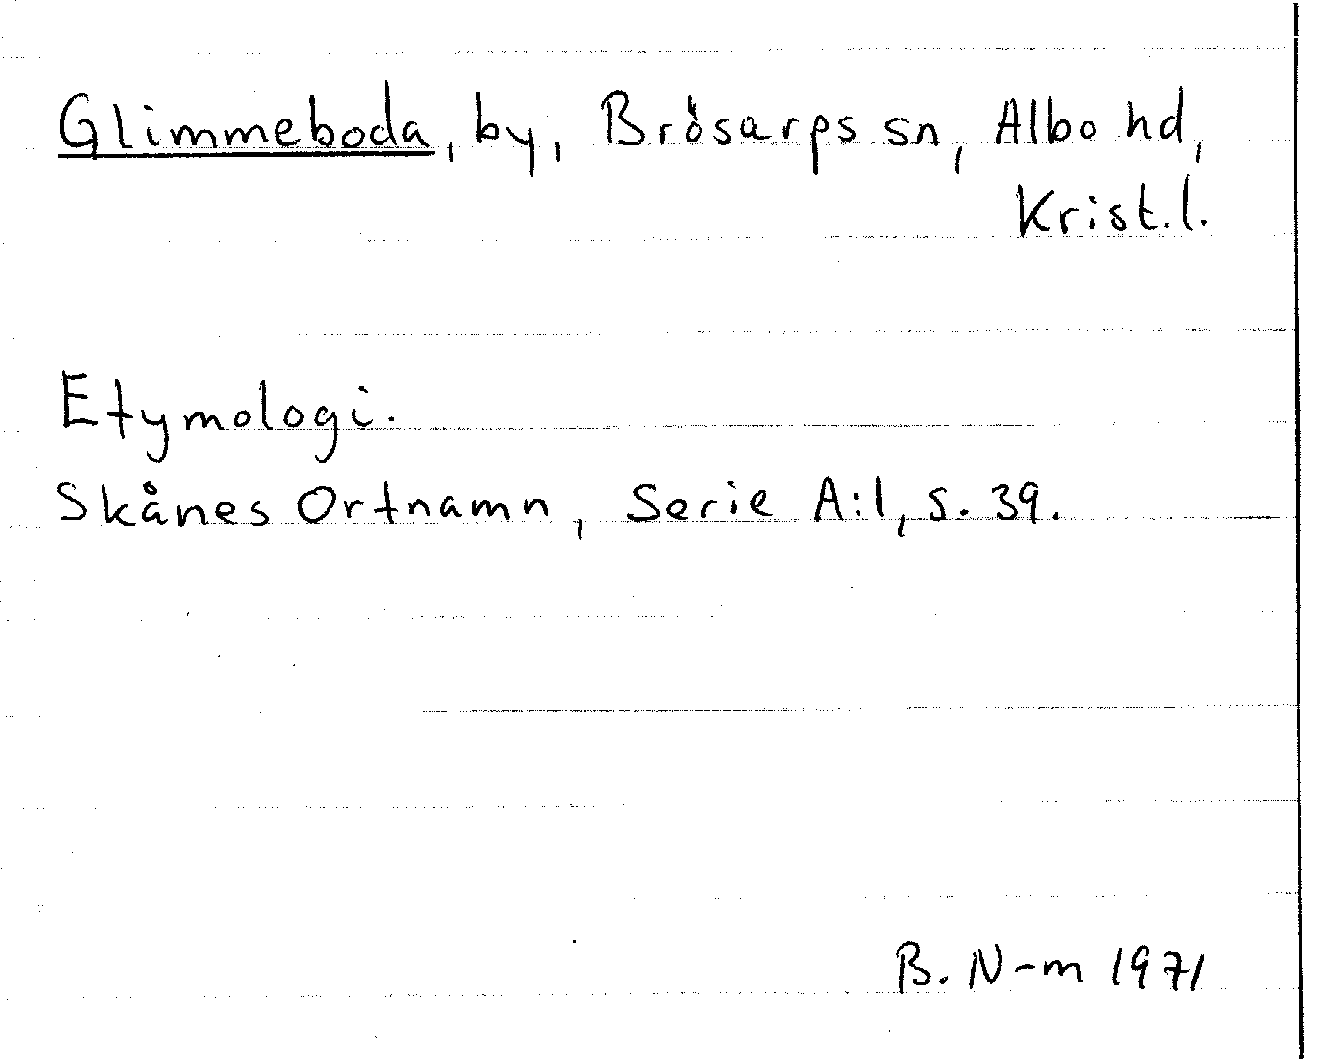 Glimmeboda, by, Brösarps sn, Albo hd,
Krist.l.
Etymologi.
Skånes Ortnamn, Serie A:1, s. 39.
B. N-m 1971